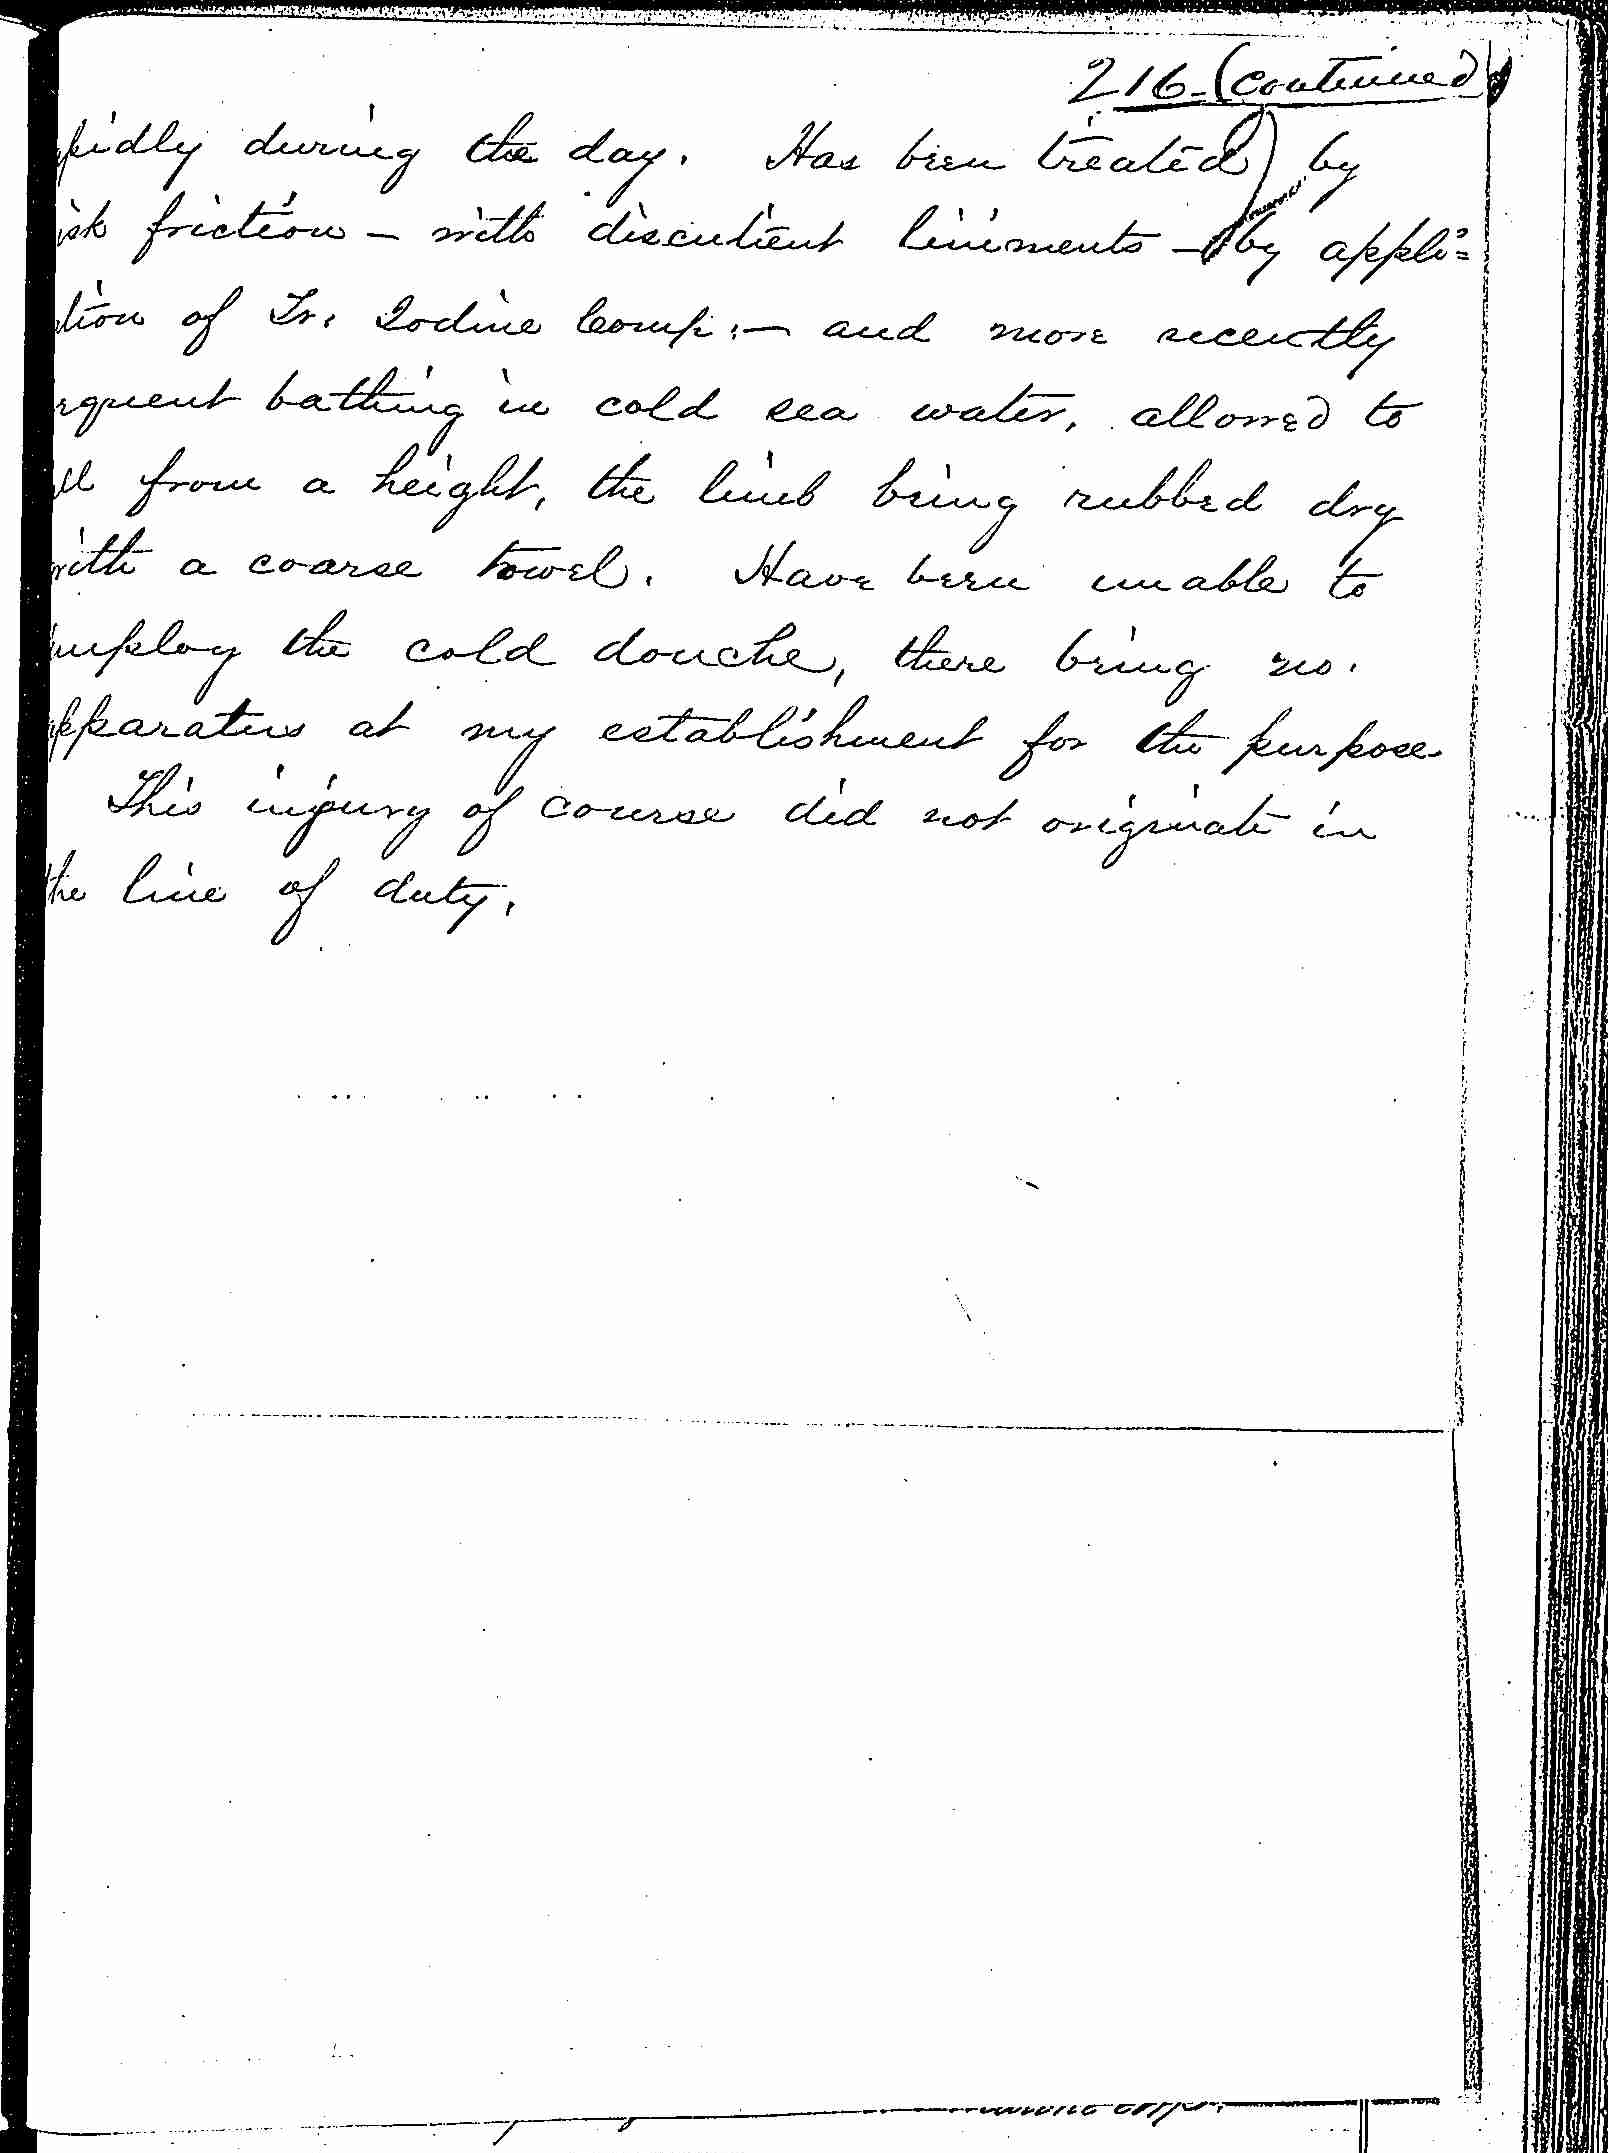 216-(continued)
pidly during the day. Has been treated by
isk friction - with discutient liniments - by appli=
tion of Tr. Iodine Comp:- and more recently
equent bathing in cold sea water, allowed to
ll from a height, the limb being rubbed dry
with a coarse towel. Have been unable to
employ the cold douche, there being no
apparatus at my establishment for the purpose
This injury of course did not originate in
the line of duty.